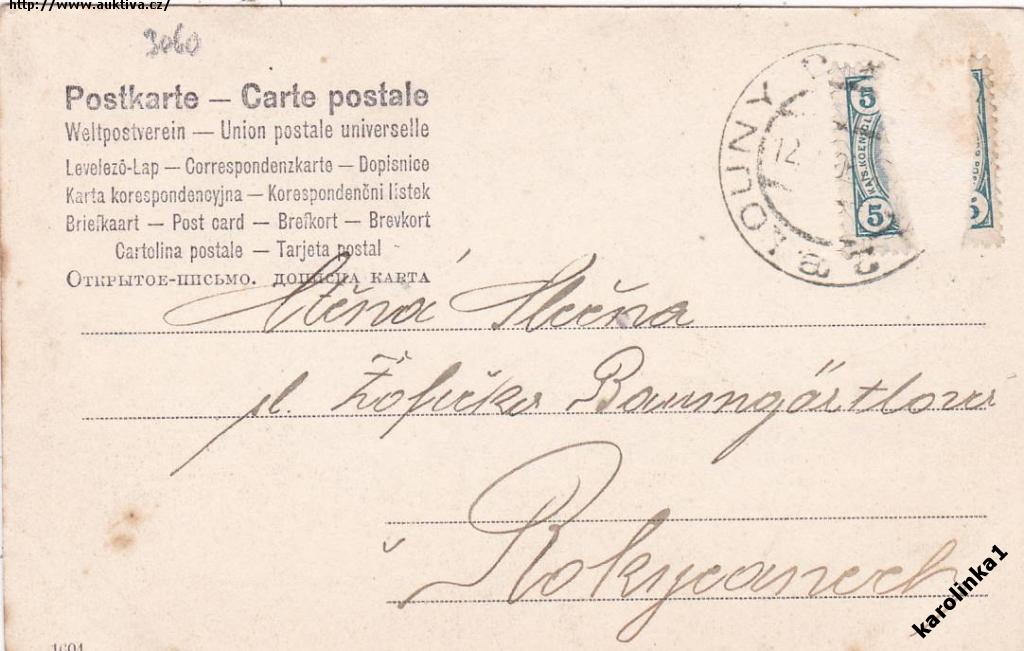 http://www.auktiva.cz/
3060
Postkarte — Carte postale
Weltpostverein — Union postale universelle
Levelező-Lap — Correspondenzkarte — Dopisnice
Karta korespondencyjna — Korespondenčni listek
Briefkaart — Post card — Brefkort — Brevkort
Cartolina postale — Tarjeta postal
Открытое-письмо. дописна карта
LOUNY
12
5
5
5
Ctěná Slečna
sl. Žofička Baumgärtlova
v Rokycanech
karolinka1
1604